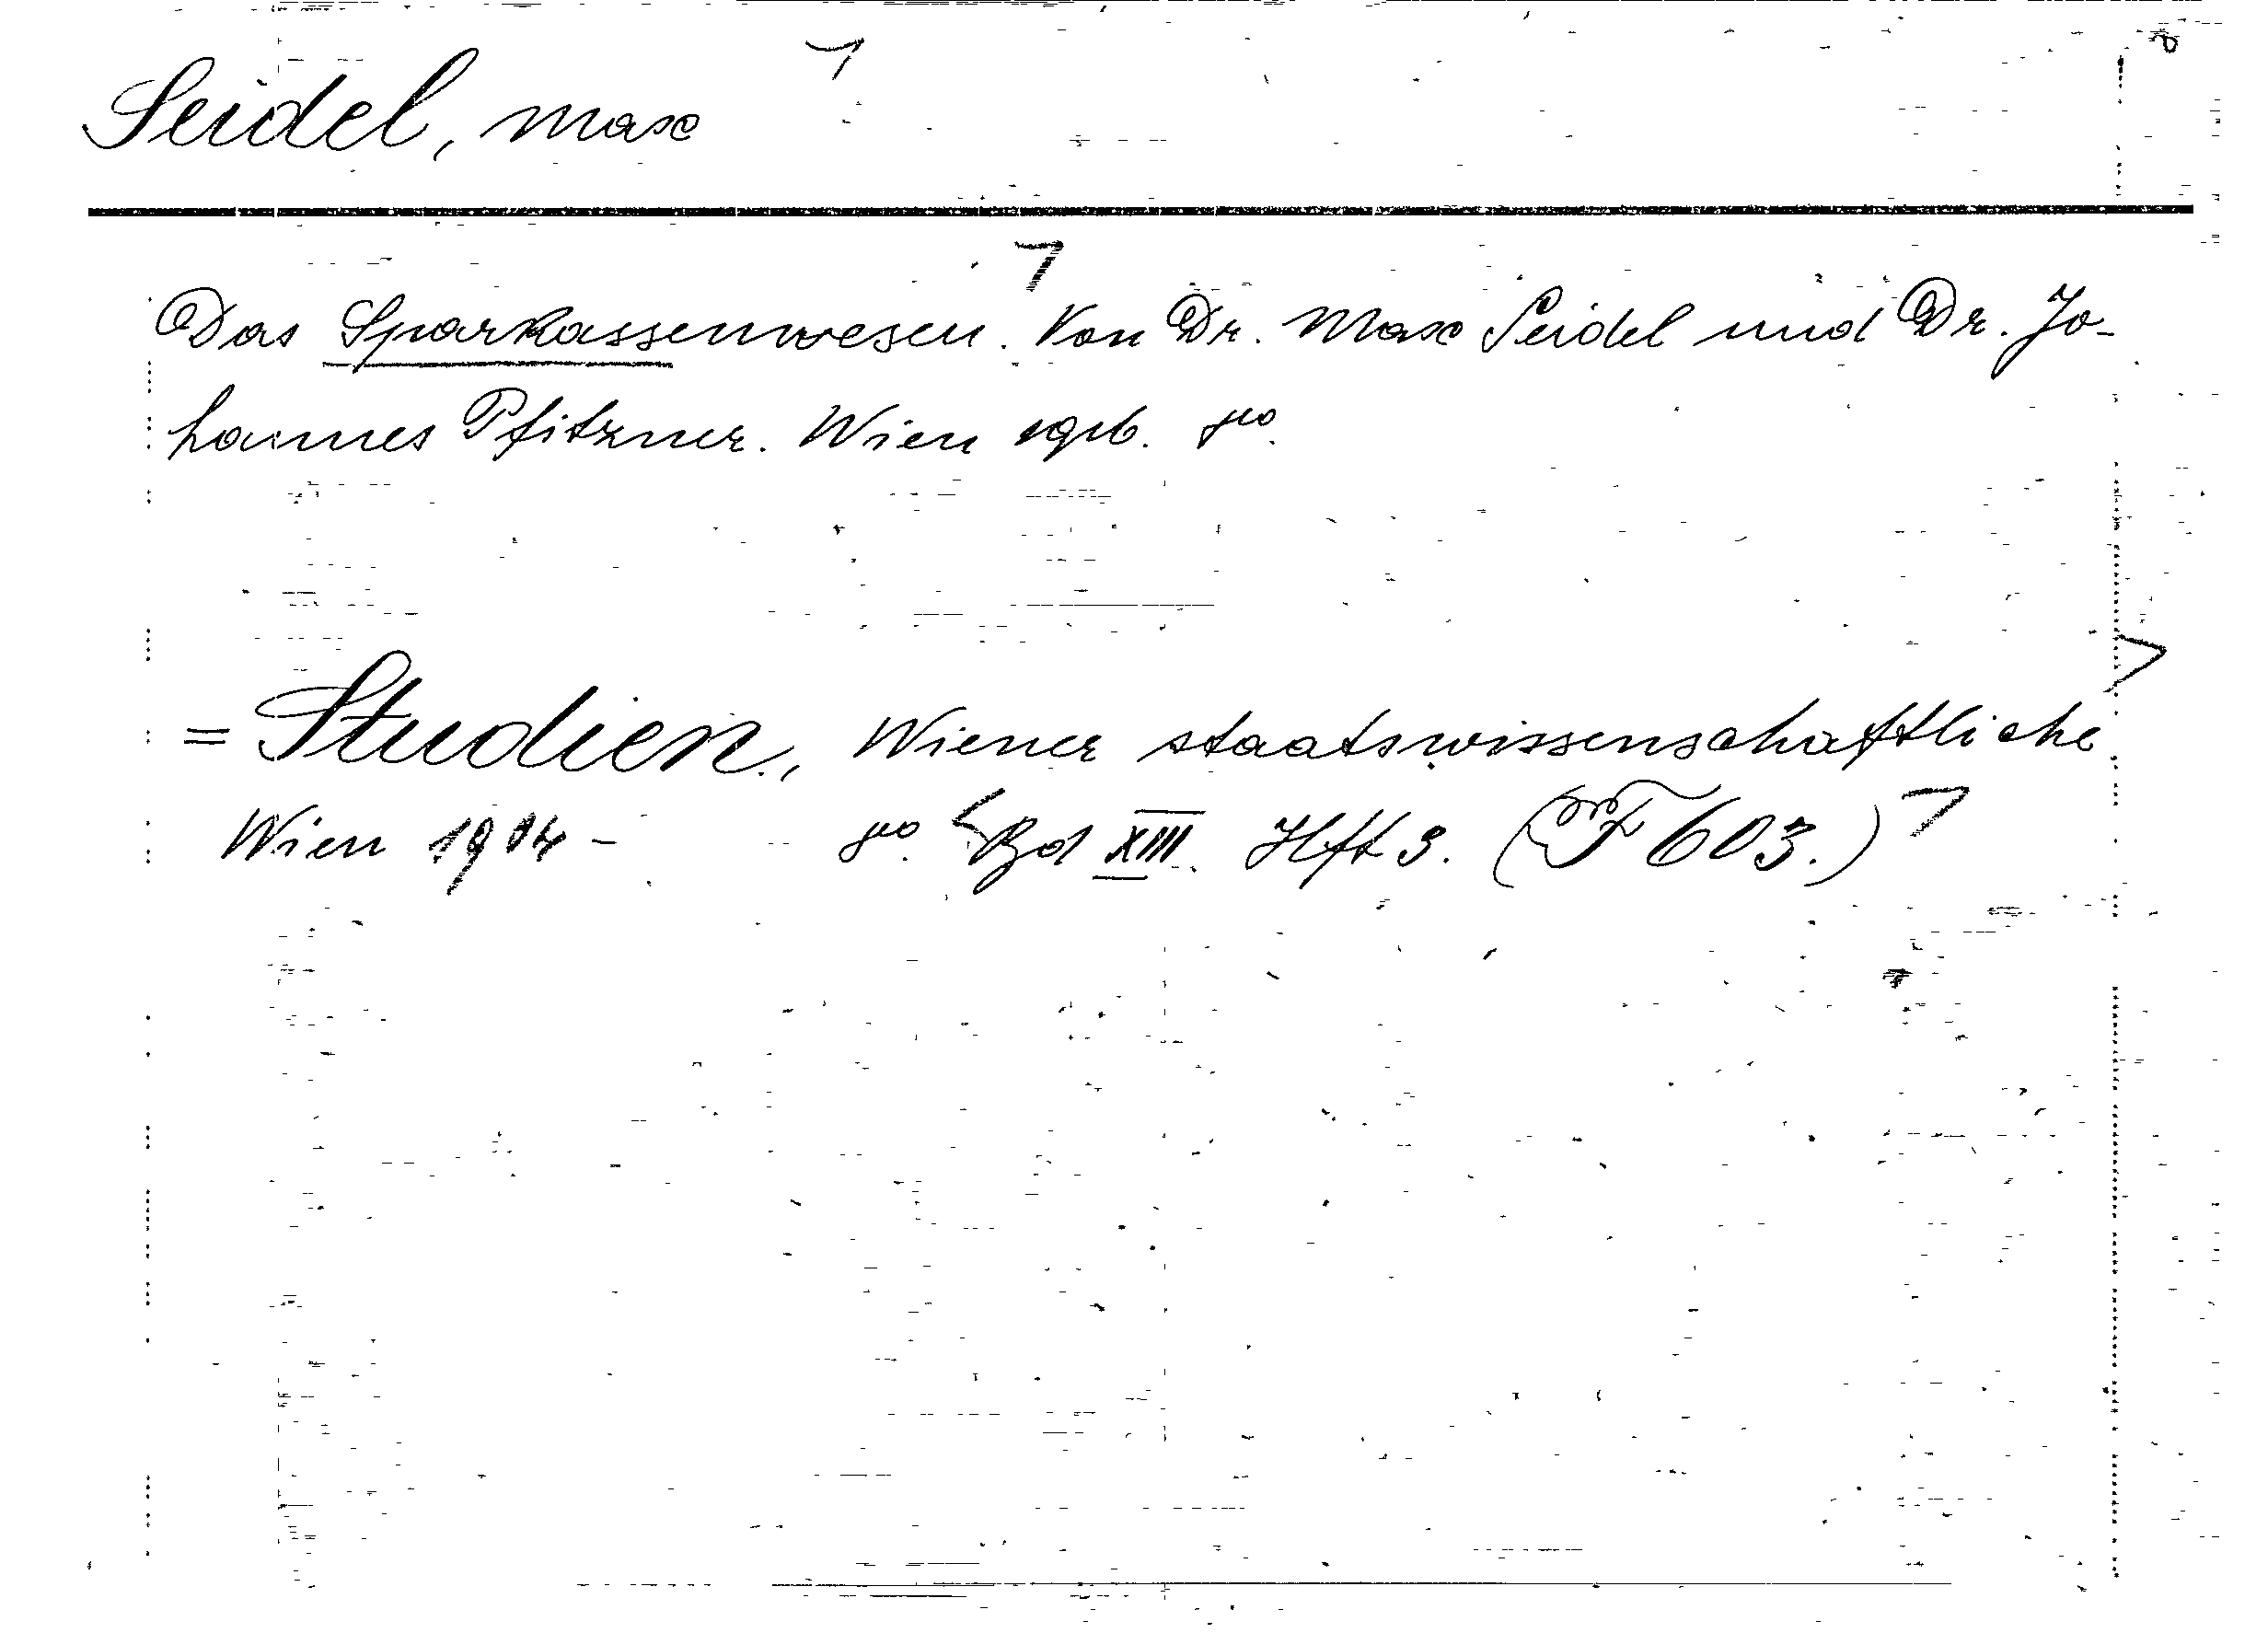 Seidel, Max
Das Sparkassenwesen. Von Dr. Max Seidel und Dr. Jo-
hannes Pfitzner. Wien 1916. 8o.
= Studien, Wiener staatswissenschaftliche
Wien 1914 - 8o. Bd XIII. Hft 3. (F 603.)